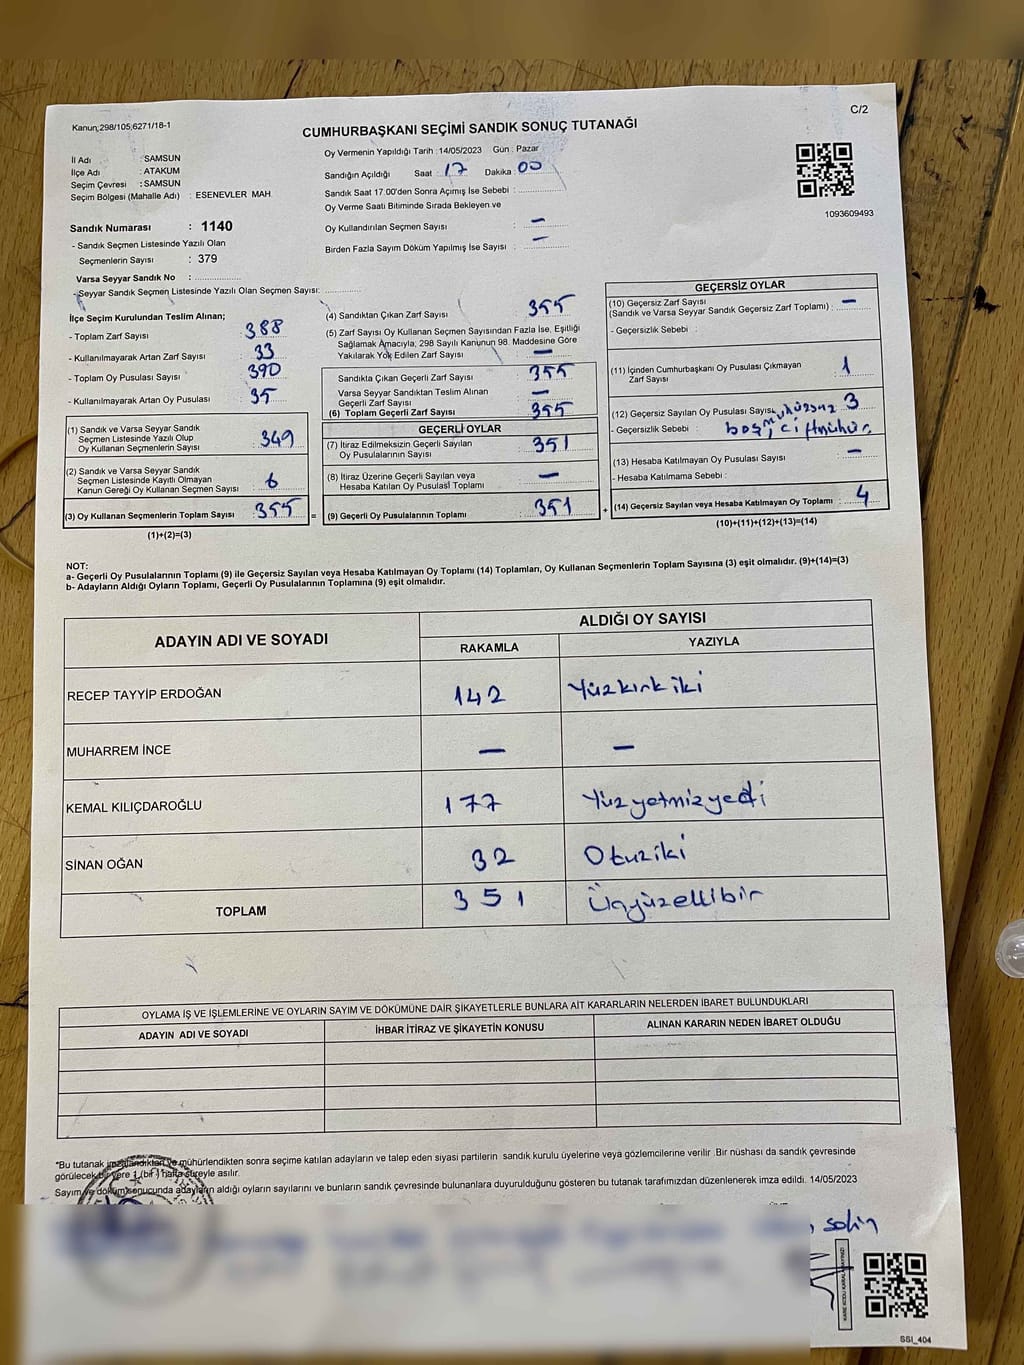 Kanun;298/105;6271/18-1
C/2
CUMHURBAŞKANI SEÇİMİ SANDIK SONUÇ TUTANAĞI
İl Adı : SAMSUN
İlçe Adı : ATAKUM
Seçim Çevresi : SAMSUN
Seçim Bölgesi (Mahalle Adı) : ESENEVLER MAH.
Sandık Numarası : 1140
- Sandık Seçmen Listesinde Yazılı Olan
Seçmenlerin Sayısı : 379
Varsa Seyyar Sandık No :
- Seyyar Sandık Seçmen Listesinde Yazılı Olan Seçmen Sayısı:
Oy Vermenin Yapıldığı Tarih : 14/05/2023 Gün : Pazar
Sandığın Açıldığı Saat : 17 Dakika : 00
Sandık Saat 17.00'den Sonra Açımış İse Sebebi :
Oy Verme Saati Bitiminde Sırada Bekleyen ve
Oy Kullandırılan Seçmen Sayısı : —
Birden Fazla Sayım Döküm Yapılmış İse Sayısı : —
1093609493
İlçe Seçim Kurulundan Teslim Alınan;
- Toplam Zarf Sayısı : 388
- Kullanılmayarak Artan Zarf Sayısı : 33
- Toplam Oy Pusulası Sayısı : 390
- Kullanılmayarak Artan Oy Pusulası : 35
(1) Sandık ve Varsa Seyyar Sandık
Seçmen Listesinde Yazılı Olup
Oy Kullanan Seçmenlerin Sayısı : 349
(2) Sandık ve Varsa Seyyar Sandık
Seçmen Listesinde Kayıtlı Olmayan
Kanun Gereği Oy Kullanan Seçmen Sayısı : 6
(3) Oy Kullanan Seçmenlerin Toplam Sayısı : 355
(1)+(2)=(3)
(4) Sandıktan Çıkan Zarf Sayısı : 355
(5) Zarf Sayısı Oy Kullanan Seçmen Sayısından Fazla İse, Eşitliği
Sağlamak Amacıyla, 298 Sayılı Kanunun 98. Maddesine Göre
Yakılarak Yok Edilen Zarf Sayısı : —
Sandıkta Çıkan Geçerli Zarf Sayısı : 355
Varsa Seyyar Sandıktan Teslim Alınan
Geçerli Zarf Sayısı : —
(6) Toplam Geçerli Zarf Sayısı : 355
GEÇERLİ OYLAR
(7) İtiraz Edilmeksizin Geçerli Sayılan
Oy Pusulalarının Sayısı : 351
(8) İtiraz Üzerine Geçerli Sayılan veya
Hesaba Katılan Oy Pusulası Toplamı : —
= (9) Geçerli Oy Pusulalarının Toplamı : 351
GEÇERSİZ OYLAR
(10) Geçersiz Zarf Sayısı
(Sandık ve Varsa Seyyar Sandık Geçersiz Zarf Toplamı) : —
- Geçersizlik Sebebi :
(11) İçinden Cumhurbaşkanı Oy Pusulası Çıkmayan
Zarf Sayısı : 1
(12) Geçersiz Sayılan Oy Pusulası Sayısı : 3
- Geçersizlik Sebebi : boş, mühürsüz çiftmühür
(13) Hesaba Katılmayan Oy Pusulası Sayısı : —
- Hesaba Katılmama Sebebi :
+ (14) Geçersiz Sayılan veya Hesaba Katılmayan Oy Toplamı : 4
(10)+(11)+(12)+(13)=(14)
NOT:
a- Geçerli Oy Pusulalarının Toplamı (9) ile Geçersiz Sayılan veya Hesaba Katılmayan Oy Toplamı (14) Toplamları, Oy Kullanan Seçmenlerin Toplam Sayısına (3) eşit olmalıdır. (9)+(14)=(3)
b- Adayların Aldığı Oyların Toplamı, Geçerli Oy Pusulalarının Toplamına (9) eşit olmalıdır.
ADAYIN ADI VE SOYADI
ALDIĞI OY SAYISI
RAKAMLA YAZIYLA
RECEP TAYYİP ERDOĞAN 142 Yüzkırkiki
MUHARREM İNCE — —
KEMAL KILIÇDAROĞLU 177 Yüzyetmişyedi
SİNAN OĞAN 32 Otuziki
TOPLAM 351 Üçyüzellibir
OYLAMA İŞ VE İŞLEMLERİNE VE OYLARIN SAYIM VE DÖKÜMÜNE DAİR ŞİKAYETLERLE BUNLARA AİT KARARLARIN NELERDEN İBARET BULUNDUKLARI
ADAYIN ADI VE SOYADI İHBAR İTİRAZ VE ŞİKAYETİN KONUSU ALINAN KARARIN NEDEN İBARET OLDUĞU
*Bu tutanak imzalandıktan ve mühürlendikten sonra seçime katılan adayların ve talep eden siyasi partilerin sandık kurulu üyelerine veya gözlemcilerine verilir .Bir nüshası da sandık çevresinde
görülecek bir yere 1 (bir ) hafta süreyle asılır.
Sayım ve döküm sonucunda adayların aldığı oyların sayılarını ve bunların sandık çevresinde bulunanlara duyurulduğunu gösteren bu tutanak tarafımızdan düzenlenerek imza edildi. 14/05/2023
KARE KODU KARALAMAYINIZ!
SSI_404